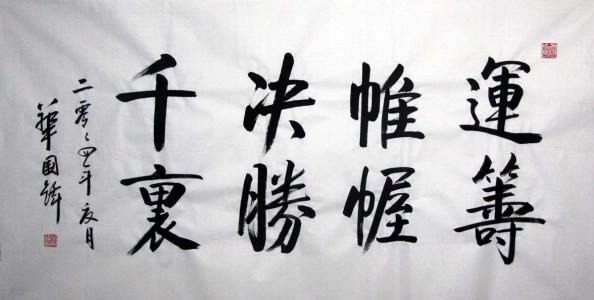 運籌
帷幄
决勝
千裏
二零々四年夏月
華國鋒